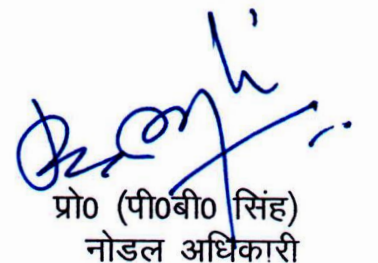 प्रो0 (पी0बी0 सिंह)
नोडल अधिकारी